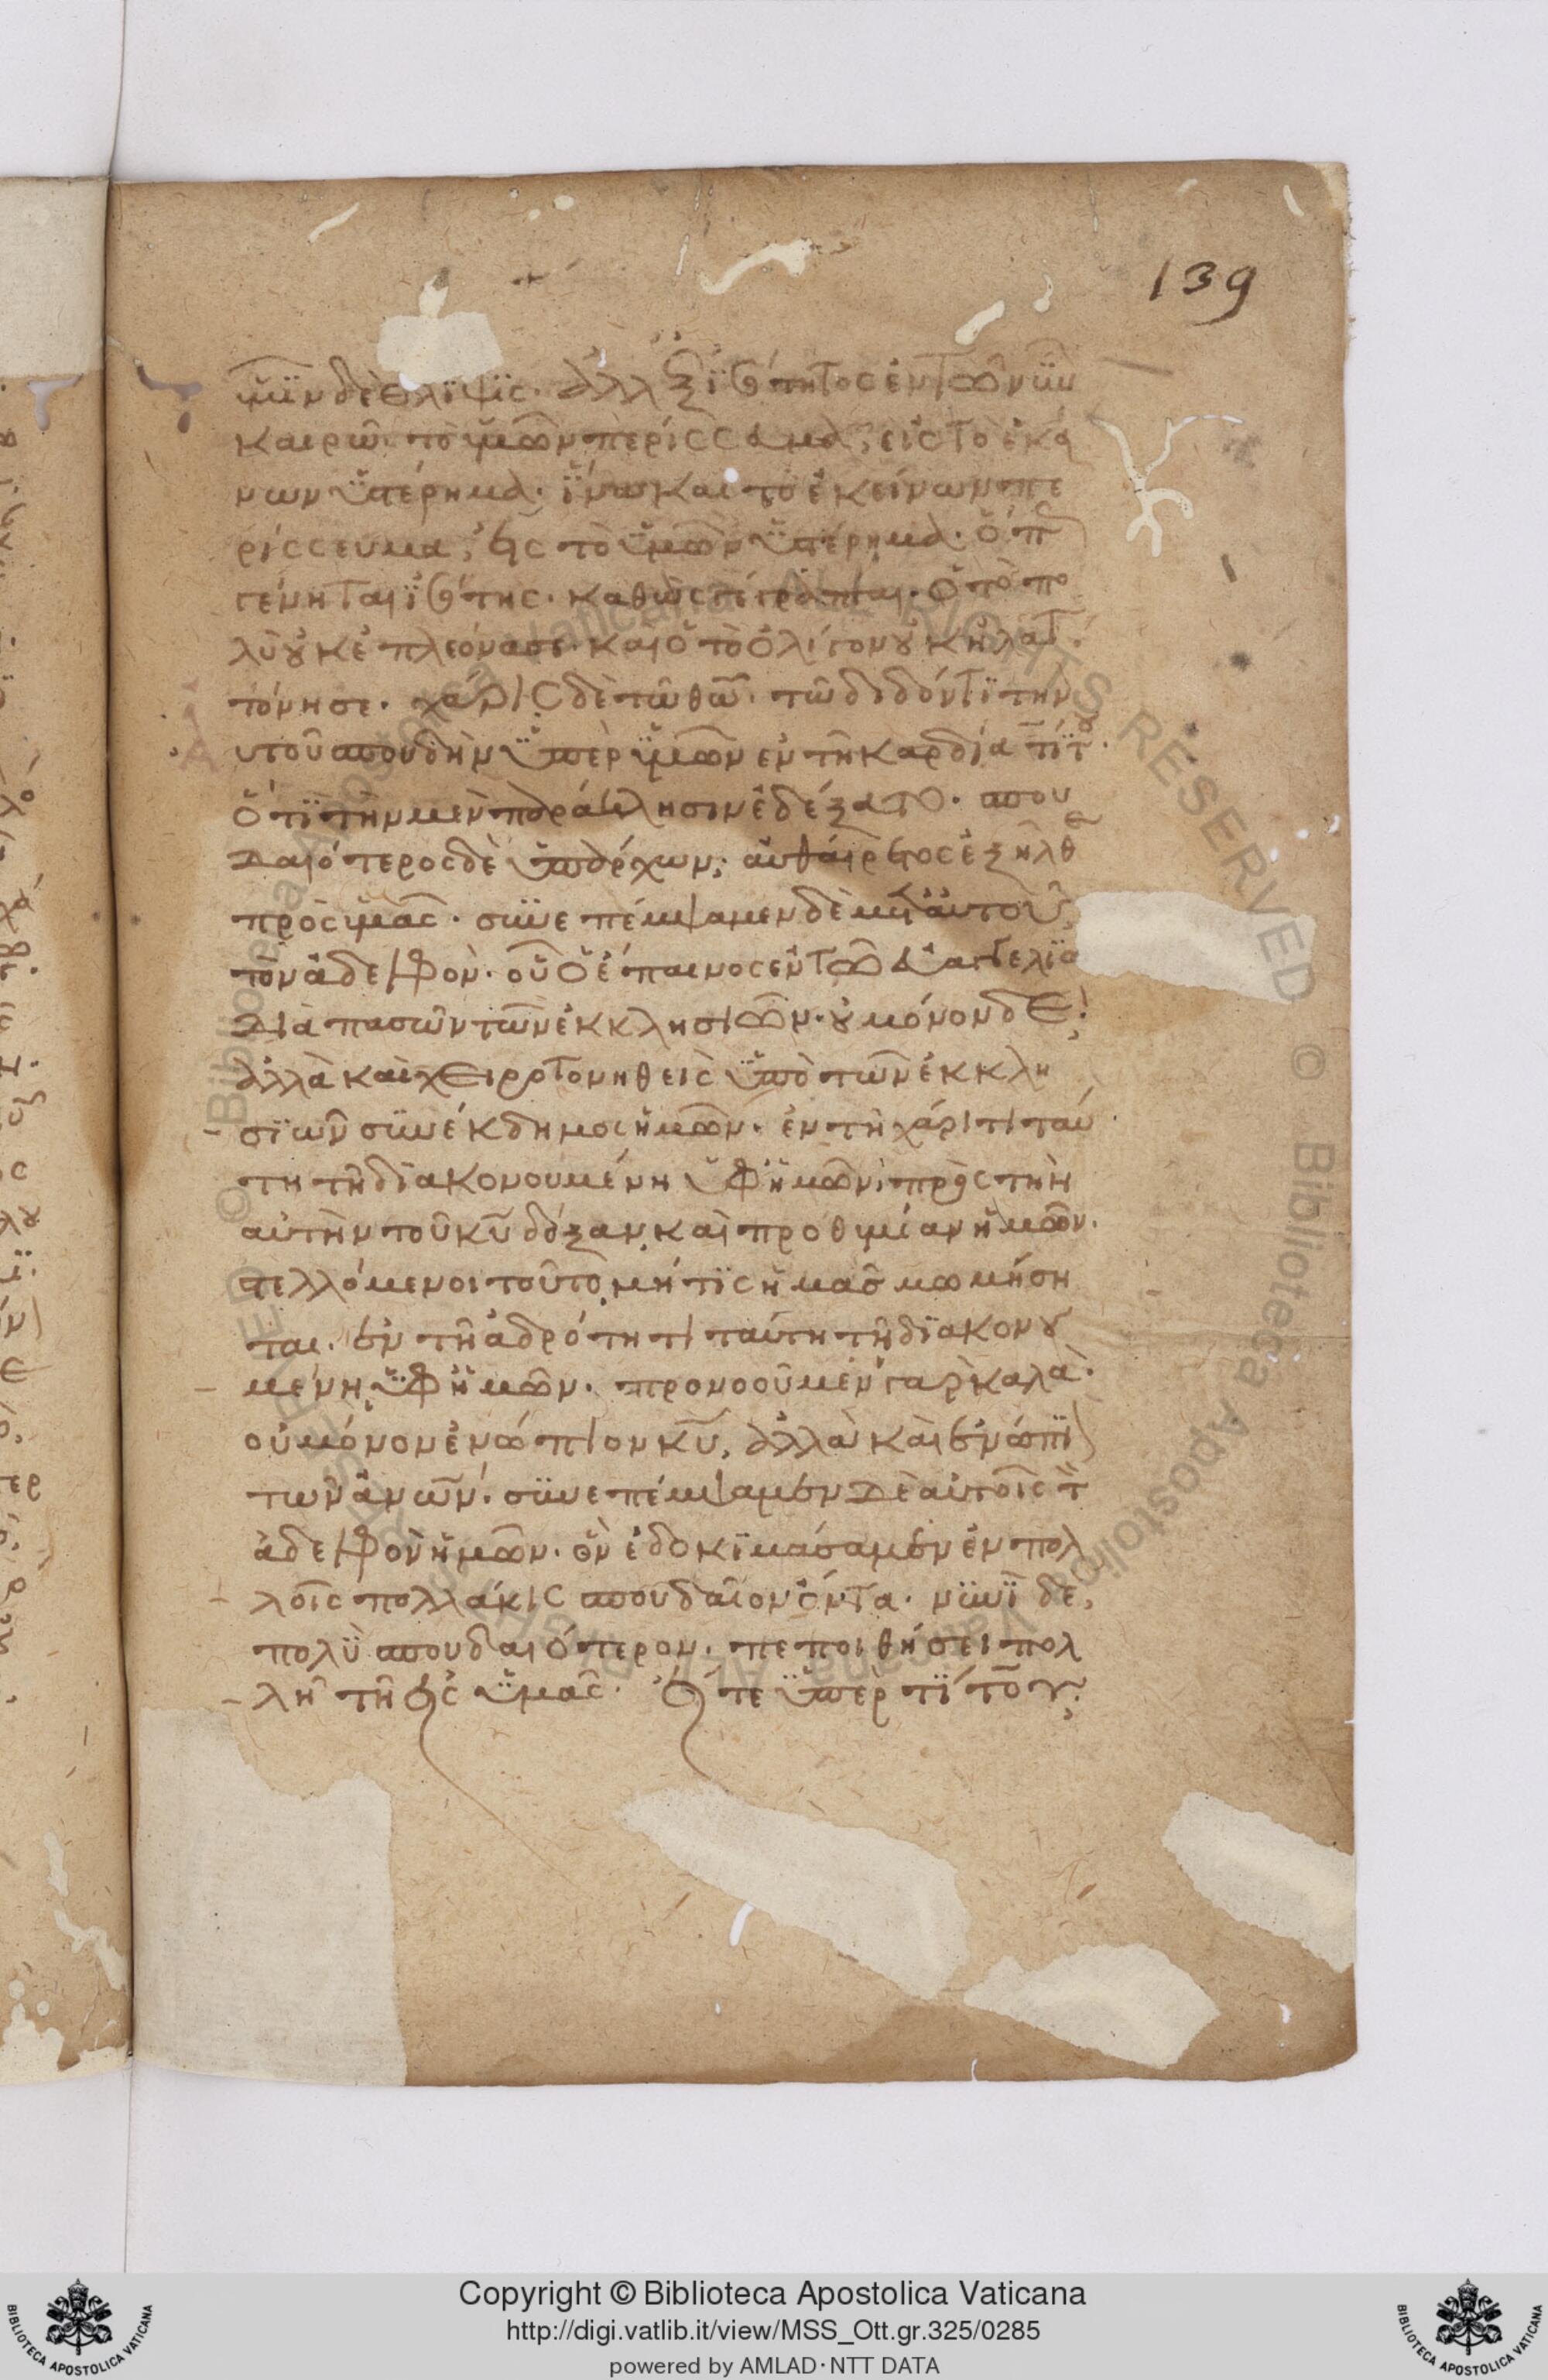 139
ὑμῖν δὲ θλίψις· ἀλλ ἐξ ἰσότητος ἐν τῶ νῦν
καιρῶ· τὸ ὑμῶν περίσσευμα, εἰς τὸ ἐκεί
νων ὑστέρημα· ἵνα καὶ τὸ ἐκείνων πε
ρίσσευμα, εἰς τὸ ὑμῶν ὑστέρημα· ὅπ
γένηται ἰσότης· καθὼς γέγραπται· ὁ τὸ πο
λὺ οὐκ ἐπλεόνασε· καὶ ὁ τὸ ὀλίγον οὐκ ἠλατ
τόνησε· χάρις δὲ τῶ θῶ· τῶ διδόντι τὴν
αυτοῦ σπουδὴν ὑπὲρ ὑμῶν ἐν τῆ καρδία τίτου·
ὅτι τὴν μὲν παράκλησιν ἐδέξατο· σπου
δαιότερος δὲ ὑπάρχων, αὐθαίρετος ἐξῆλθε
πρὸς ὑμᾶς· συνεπέμψαμεν δὲ μετ αὐτοῦ,
τὸν ἀδελφὸν· οὗ ὁ ἔπαινος ἐν τῶ εὐαγγελίω
διὰ πασῶν τῶν ἐκκλησιῶν· οὐ μόνον δὲ,
ἀλλὰ καὶ χειροτονηθεὶς ὑπὸ τῶν ἐκκλη
σιῶν συνέκδημος ἡμῶν· ἐν τῆ χάριτι ταύ
τη τῆ διακονουμένη ὑφ ἡμῶν, πρὸς τὴν
αὐτὴν τοῦ κυ δόξαν, καὶ προθυμίαν ἡμῶν·
στελλόμενοι τοῦτο, μή τις ἡμᾶς μωμήση
ται· ἐν τῆ ἁδρότητι ταύτη τῆ διακονου
μένη ὑφ ἡμῶν· προνοοῦμεν γὰρ καλὰ·
οὐ μόνον ἐνώπιον κυ, ἀλλὰ καὶ ἐνώπιον
τῶν ἀνων· συνεπέμψαμεν δὲ αὐτοῖς τὸν
ἀδελφὸν ἡμῶν· ὃν ἐδοκιμάσαμεν ἐν πολ
λοῖς πολλάκις σπουδαῖον ὄντα· νυνὶ δε,
πολὺ σπουδαιότερον· πεποιθήσει πολ
λῆ τῆ εἰς ὑμᾶς· εἴτε ὑπὲρ τίτου,
Copyright © Biblioteca Apostolica Vaticana
http://digi.vatlib.it/view/MSS_Ott.gr.325/0285
powered by AMLAD·NTT DATA